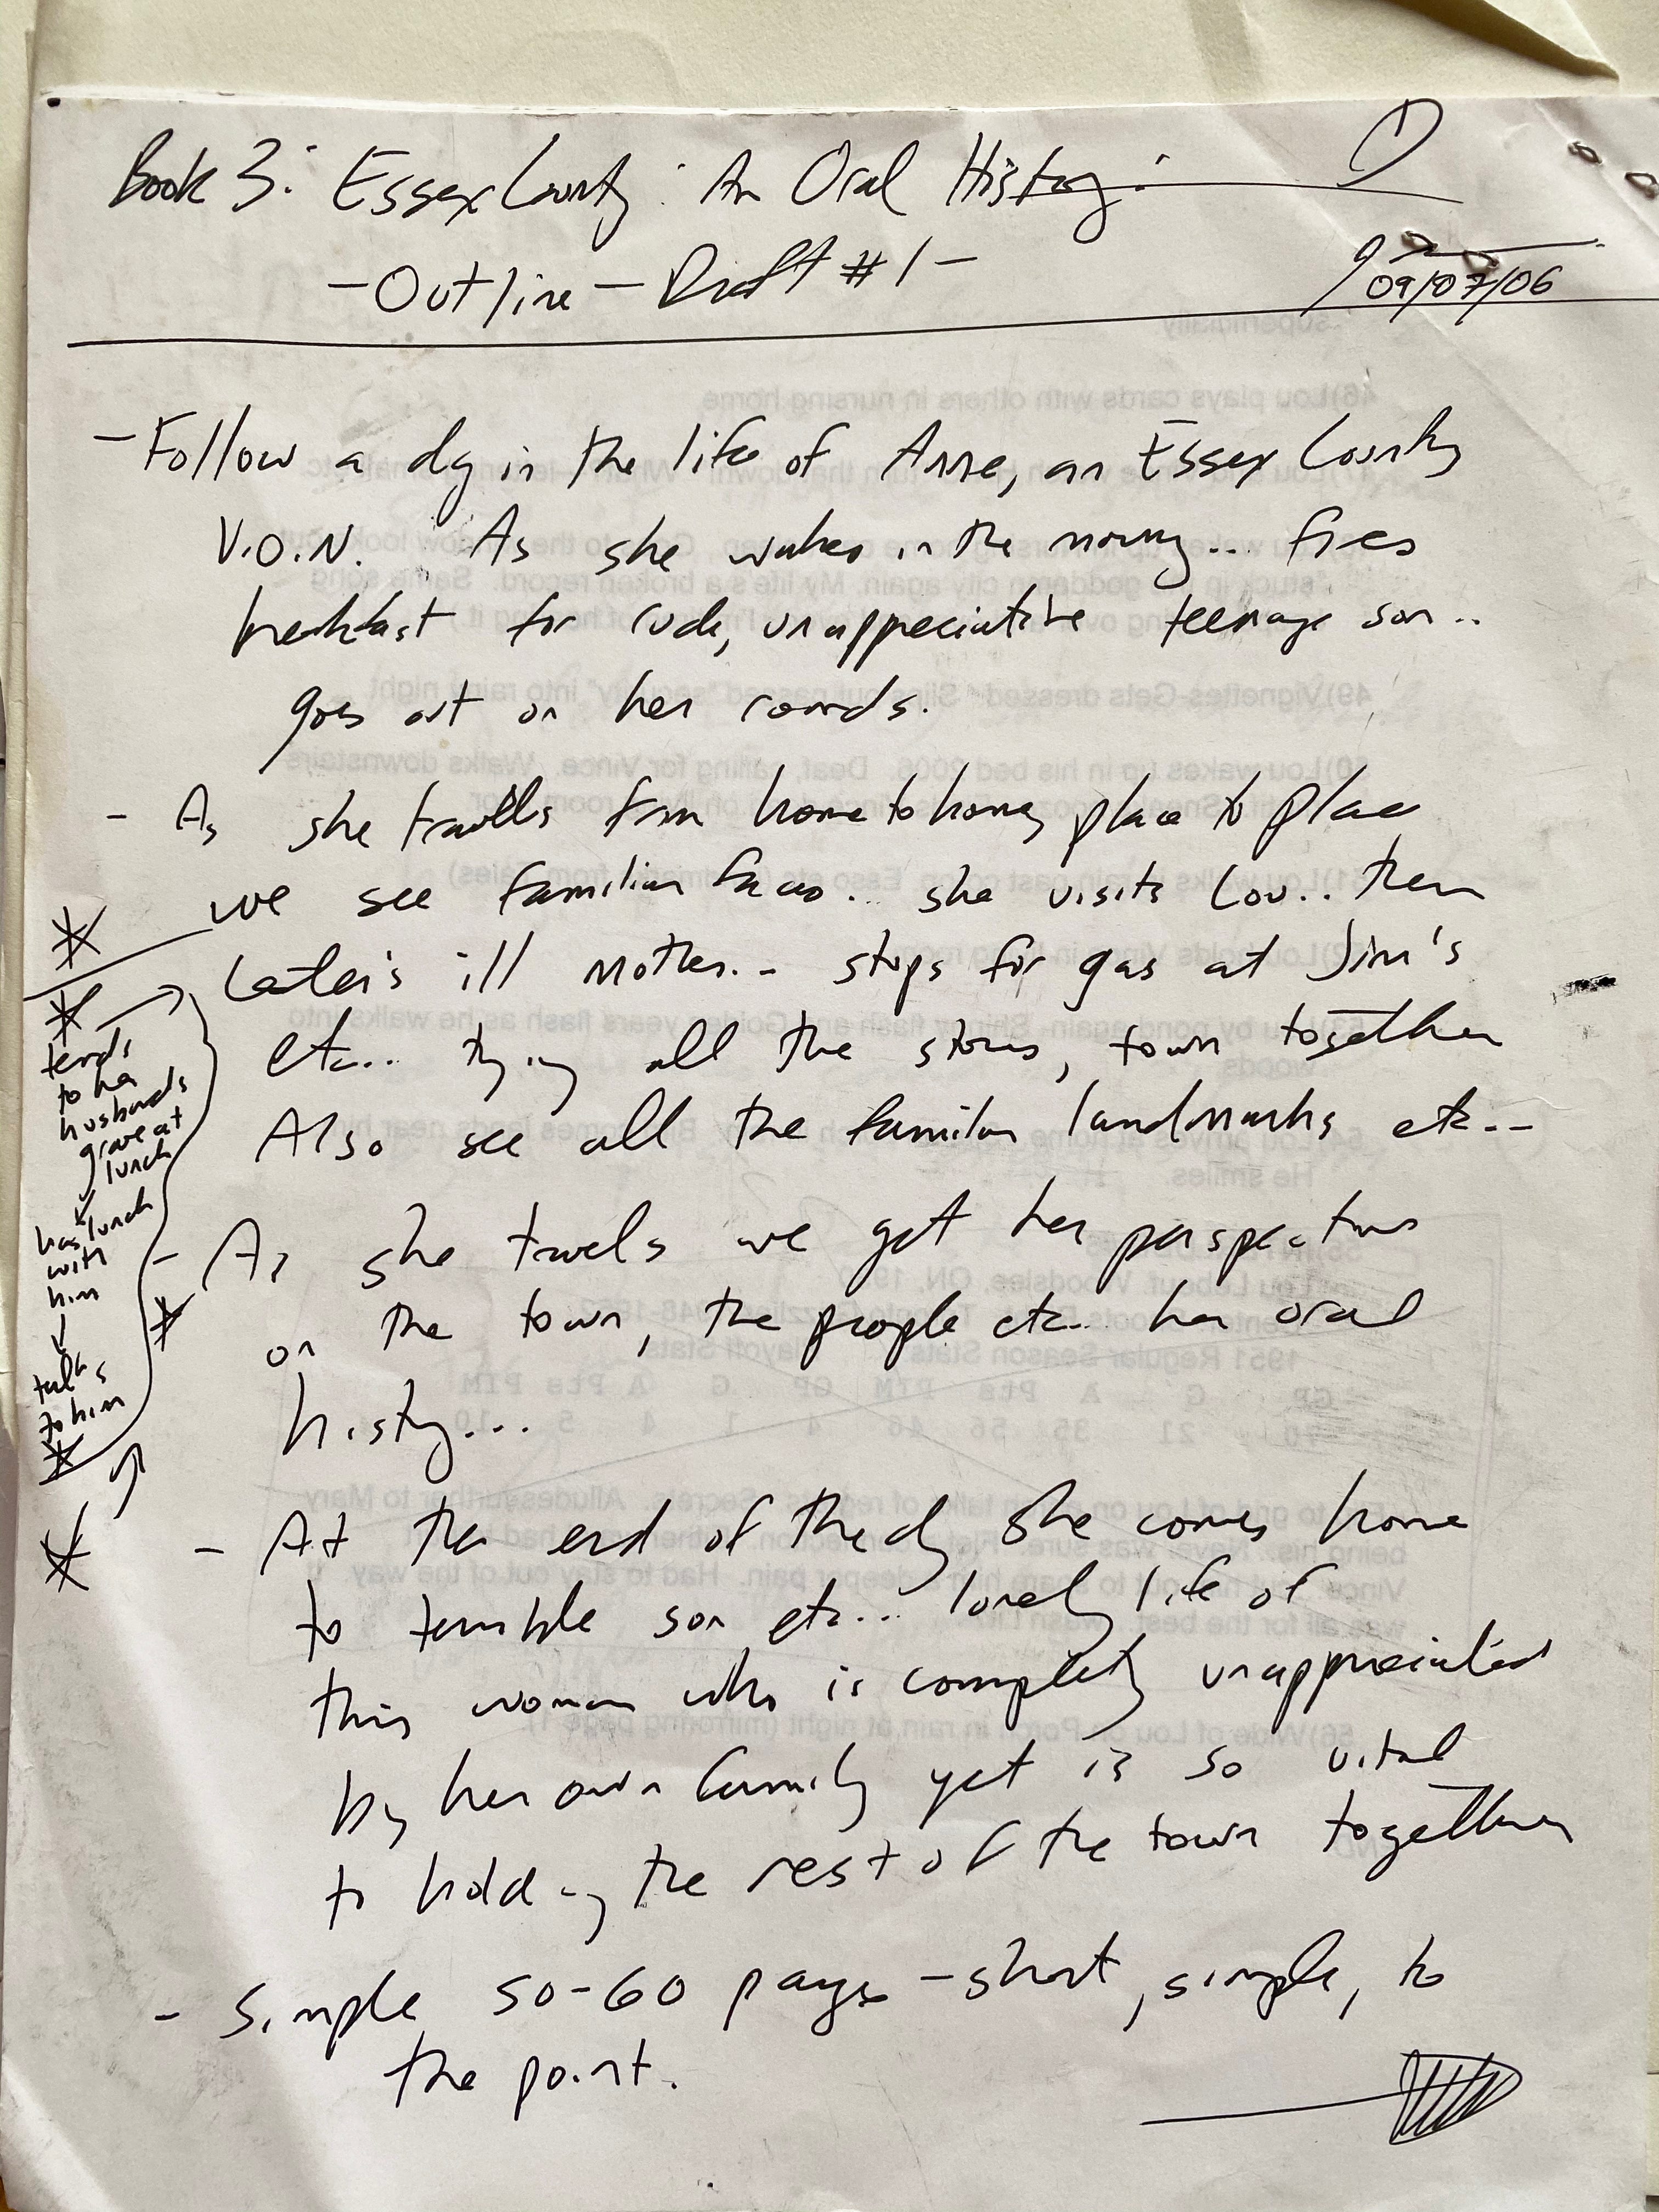 Book 3: Essex County: An Oral History:
1
-Outline - Draft #1-
09/07/06
- Follow a day in the life of Anne, an Essex County
V.O.N. As she wakes in the morning... fixes
breakfast for rude, unappreciative teenage son..
goes out on her rounds.
- As she travells from home to home, place to place
we see familiar faces... she visits Lou.. then
Lester's ill mother.. stops for gas at Jim's
etc... tying all the stories, town together
Also see all the familiar landmarks etc..
- As she travels we get her perspective
on the town, the people etc... her oral
history...
- At the end of the day she comes home
to terrible son etc... lonely life of
this woman who is completely unappreciated
by her own family yet is so vital
to holding the rest of the town together
- Simple 50-60 pages - short, simple, to
the point.
tends
to her
husbands
grave at
lunch
has lunch
with
him
talks
to him
46)Lou plays cards with others in nursing home
49)Vignettes-Gets dressed
He smiles.
1951 Regular Season Stats
GP G A Pts PIM